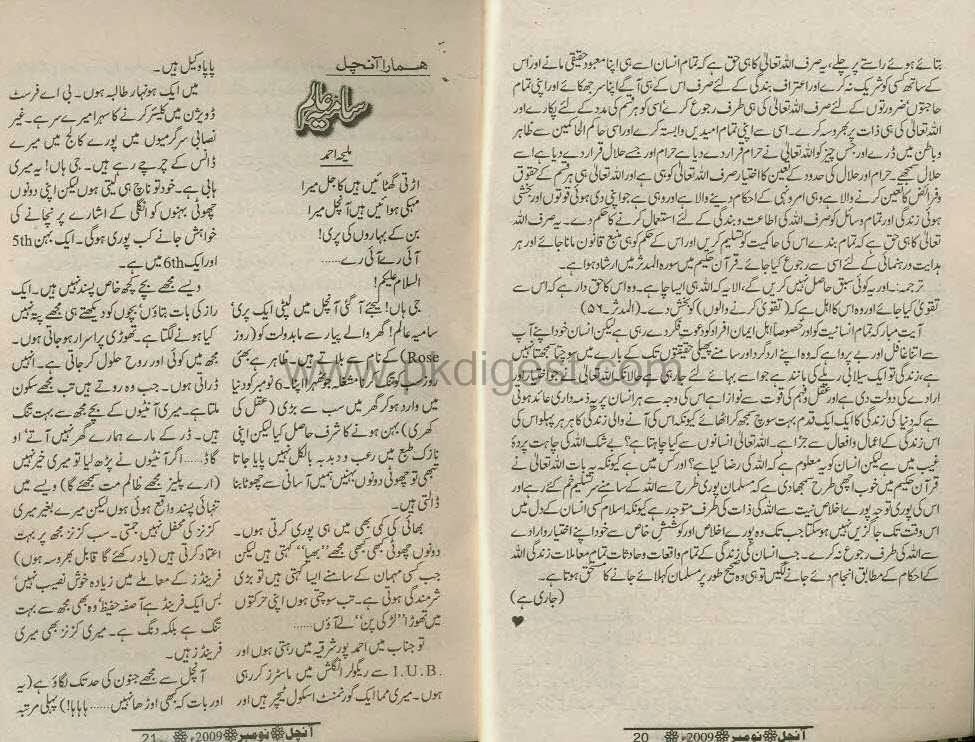 بتائے ہوئے راستے پر چلے، یہ صرف اللہ تعالیٰ کا ہی حق ہے کہ تمام انسان اسے ہی اپنا معبود حقیقی مانے اور اس
کے ساتھ کسی کو شریک نہ کرے اور اعتراف بندگی کے لئے صرف اس کے ہی آگے اپنا سر جھکائے اور اپنی تمام
حاجتوں، ضرورتوں کے لئے صرف اللہ تعالیٰ کی ہی طرف رجوع کرے اسی کو ہر قسم کی مدد کے لئے پکارے اور
اللہ تعالیٰ کی ہی ذات پر بھروسہ کرے۔ اسی سے اپنی تمام امیدیں وابستہ کرے اور اسی حاکم الحاکمین سے ظاہر
و باطن میں ڈرے اور جس چیز کو اللہ تعالیٰ نے حرام قرار دے دیا ہے حرام اور جسے حلال قرار دے دیا ہے اسے
حلال سمجھے۔ حرام اور حلال کی حدود کے تعین کا اختیار صرف اللہ تعالیٰ کو ہی ہے اور اللہ تعالیٰ ہی ہر قسم کے حقوق
و فرائض کا تعین کرنے والا ہے وہی امر و نہی کے احکام دینے والا ہے اور وہی ہے جو اپنی دی ہوئی قوتوں اور بخشی
ہوئی زندگی اور تمام وسائل کو صرف اللہ کی اطاعت و بندگی کے لئے استعمال کرنے کا حکم دے۔ یہ صرف اللہ
تعالیٰ کا ہی حق ہے کہ تمام بندے اس کی حاکمیت کو تسلیم کریں اور اس کے حکم کو ہی منبع قانون مانا جائے اور ہر
ہدایت و رہنمائی کے لئے اسی سے رجوع کیا جائے۔ قرآن حکیم میں سورہ المدثر میں ارشاد ہوا ہے۔
ترجمہ:۔ اور یہ کوئی سبق حاصل نہیں کریں گے، الا یہ کہ اللہ ہی ایسا چاہے۔ وہ اس کا حق دار ہے کہ اس سے
تقویٰ کیا جائے اور وہ اس کا اہل ہے کہ (تقویٰ کرنے والوں) کو بخش دے۔ (المدثر۔ ۵۶)
آیت مبارکہ تمام انسانیت کو اور خصوصاً اہل ایمان افراد کو دعوت فکر دے رہی ہے لیکن انسان خود اپنے آپ
سے اتنا غافل اور بے پروا ہے کہ وہ اپنے ارد گرد اور سامنے پھیلی حقیقتوں تک کے بارے میں سوچنا سمجھتا نہیں
ہے، زندگی تو ایک سیلابی ریلے کی مانند ہے جو اسے بہائے لئے جا رہی ہے حالانکہ اللہ تعالیٰ نے جو اختیار اور
ارادے کی دولت دی ہے اور عقل و فہم کی قوت سے نوازا ہے اس کی وجہ سے ہر انسان پر یہ ذمہ داری عائد ہوتی
ہے کہ دنیا کی زندگی کا ایک ایک قدم بہت سوچ سمجھ کر اٹھائے کیونکہ اس کی آنے والی زندگی کا ہر ہر پہلو اس کی
اس زندگی کے اعمال و افعال سے جڑا ہے۔ اللہ تعالیٰ انسانوں سے کیا چاہتا ہے؟ بے شک اللہ کی چاہت پردۂ
غیب میں ہے لیکن انسان کو یہ معلوم ہے کہ اللہ کی رضا کیا ہے؟ اور کس میں ہے کیونکہ یہ بات اللہ تعالیٰ نے
قرآن حکیم میں خوب اچھی طرح سمجھا دی ہے کہ مسلمان پوری طرح سے اللہ کے سامنے سر تسلیم خم کئے رہے اور
اس کی پوری توجہ پورے اخلاص نیت سے اللہ کی ذات کی طرف متوجہ رہے کیونکہ اسلام کسی انسان کے دل میں
اس وقت تک جاگزیں نہیں ہوسکتا جب تک وہ پورے اخلاص اور کوشش خاص سے خود اپنے اختیار و ارادے
سے اللہ کی طرف رجوع نہ کرے۔ جب انسان کی زندگی کے تمام واقعات و حادثات تمام معاملات زندگی اللہ
کے احکام کے مطابق انجام دئے جانے لگیں تو ہی وہ صحیح طور پر مسلمان کہلائے جانے کا مستحق ہوتا ہے۔
(جاری ہے)
آنچل نومبر 2009ء 20
ھمارا آنچل
سامیہ عالم
ملیحہ احمد
اڑتی گھٹائیں ہیں کاجل میرا
مہکی ہوائیں ہیں آنچل میرا
بن کے بہاروں کی پری!
آئی رے آئی رے......
السلام علیکم!
جی ہاں! لیجئے آ گئی آنچل میں لپٹی ایک پری،
سامیہ عالم! گھر والے پیار سے مابدولت کو (روز
Rose) کے نام سے بلاتے ہیں۔ ظاہر ہے بھئی
روز سب کو تنگ کرنا مشغلہ جو ٹھہرا اپنا۔ 6 نومبر کو دنیا
میں وارد ہو کر گھر میں سب سے بڑی (عقل کی
کھری) بہن ہونے کا شرف حاصل کیا لیکن اپنی
نازک طبع میں رعب و دبدبہ بالکل نہیں پایا جاتا
تبھی تو چھوٹی دونوں بہنیں ہمیں آسانی سے چھوٹا بنا
ڈالتی ہیں۔
بھائی کی کمی بھی میں ہی پوری کرتی ہوں۔
دونوں چھوٹی کبھی کبھی مجھے "بھیا" کہتی ہیں لیکن
جب کسی مہمان کے سامنے ایسا کہتی ہیں تو بڑی
شرمندگی ہوتی ہے۔ تب سوچتی ہوں اپنی حرکتوں
میں تھوڑا "لڑکی پن" لے آؤں......
تو جناب میں احمد پور شرقیہ میں رہتی ہوں اور
I.U.B. سے ریگولر انگلش میں ماسٹرز کر رہی
ہوں۔ میری مما ایک گورنمنٹ اسکول ٹیچر ہیں اور
پاپا وکیل ہیں۔
میں ایک ہونہار طالبہ ہوں۔ بی اے فرسٹ
ڈویژن میں کلیئر کرنے کا سہرا میرے سر ہے۔ غیر
نصابی سرگرمیوں میں پورے کالج میں میرے
ڈانس کے چرچے رہے ہیں۔ جی ہاں! یہ میری
ہابی ہے۔ خود تو ناچ ہی لیتی ہوں لیکن اپنی دونوں
چھوٹی بہنوں کو انگلی کے اشارے پر نچانے کی
خواہش جانے کب پوری ہوگی۔ ایک بہن 5th
اور ایک 6th میں ہے۔
ویسے مجھے بچے کچھ خاص پسند نہیں ہیں۔ ایک
راز کی بات بتاؤں، بچوں کو دیکھتے ہی مجھے پتہ نہیں
کیا ہونے لگتا ہے۔ تھوڑی پراسرار ہو جاتی ہوں۔
مجھ میں کوئی اور روح حلول کر جاتی ہے۔ انہیں
ڈراتی ہوں۔ جب وہ روتے ہیں تب مجھے سکون
ملتا ہے۔ میری آنٹیوں کے بچے مجھ سے بہت تنگ
ہیں۔ ڈر کے مارے ہمارے گھر نہیں آتے، او
گاڈ..... اگر آنٹیوں نے پڑھ لیا تو میری خیر نہیں
(ارے پلیز مجھے ظالم مت سمجھئے گا) ویسے میں
تنہائی پسند واقع ہوئی ہوں لیکن میرے بغیر میری
کزنز کی محفل نہیں جمتی۔ سب کزنز مجھ پر بہت
اعتماد کرتی ہیں (یاد رکھئے گا قابل بھروسہ ہوں)
فرینڈز کے معاملے میں زیادہ خوش نصیب نہیں،
بس ایک فرینڈ ہے آصفہ حفیظ، وہ بھی مجھ سے بہت
تنگ ہے بلکہ دنگ ہے۔ میری کزنز بھی میری
فرینڈز ہیں۔
آنچل سے مجھے جنون کی حد تک لگاؤ ہے (یہ
اور بات کہ کبھی اوڑھا نہیں...... ہاہاہا!) پہلی مرتبہ
آنچل نومبر 2009ء 21
www.pkdigest.com